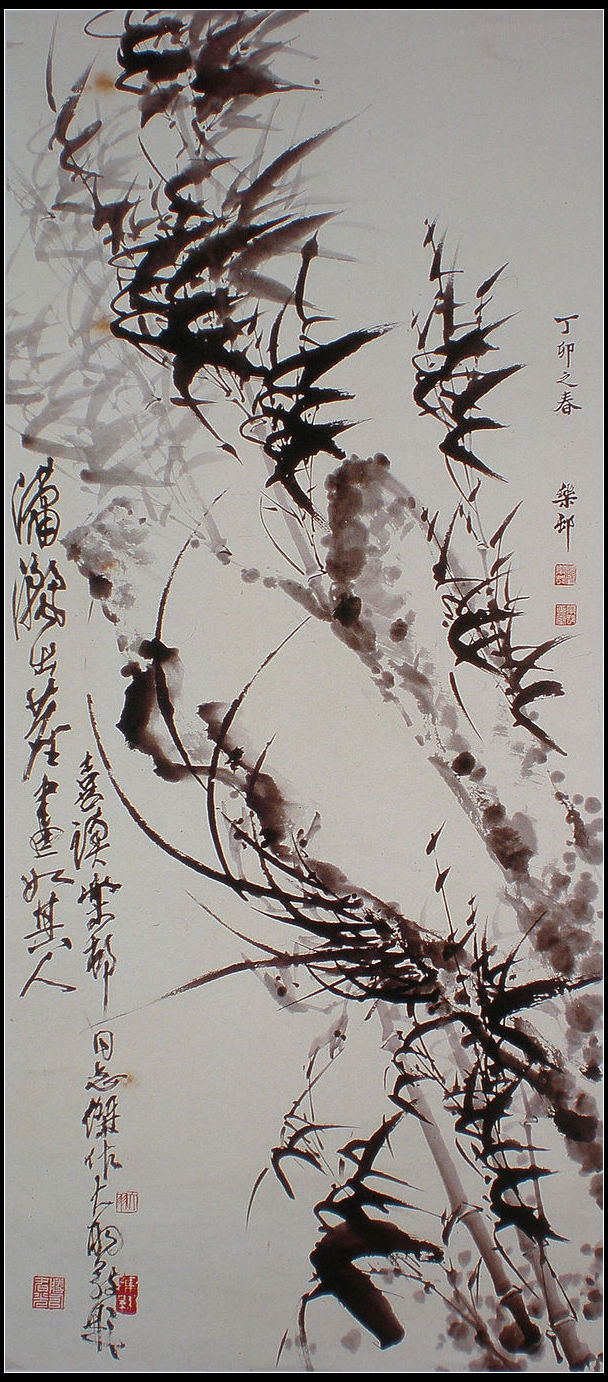 丁卯之春
樂邨
瀟灑出塵畫如其人
喜讀樂邨同志傑作大羽敬題